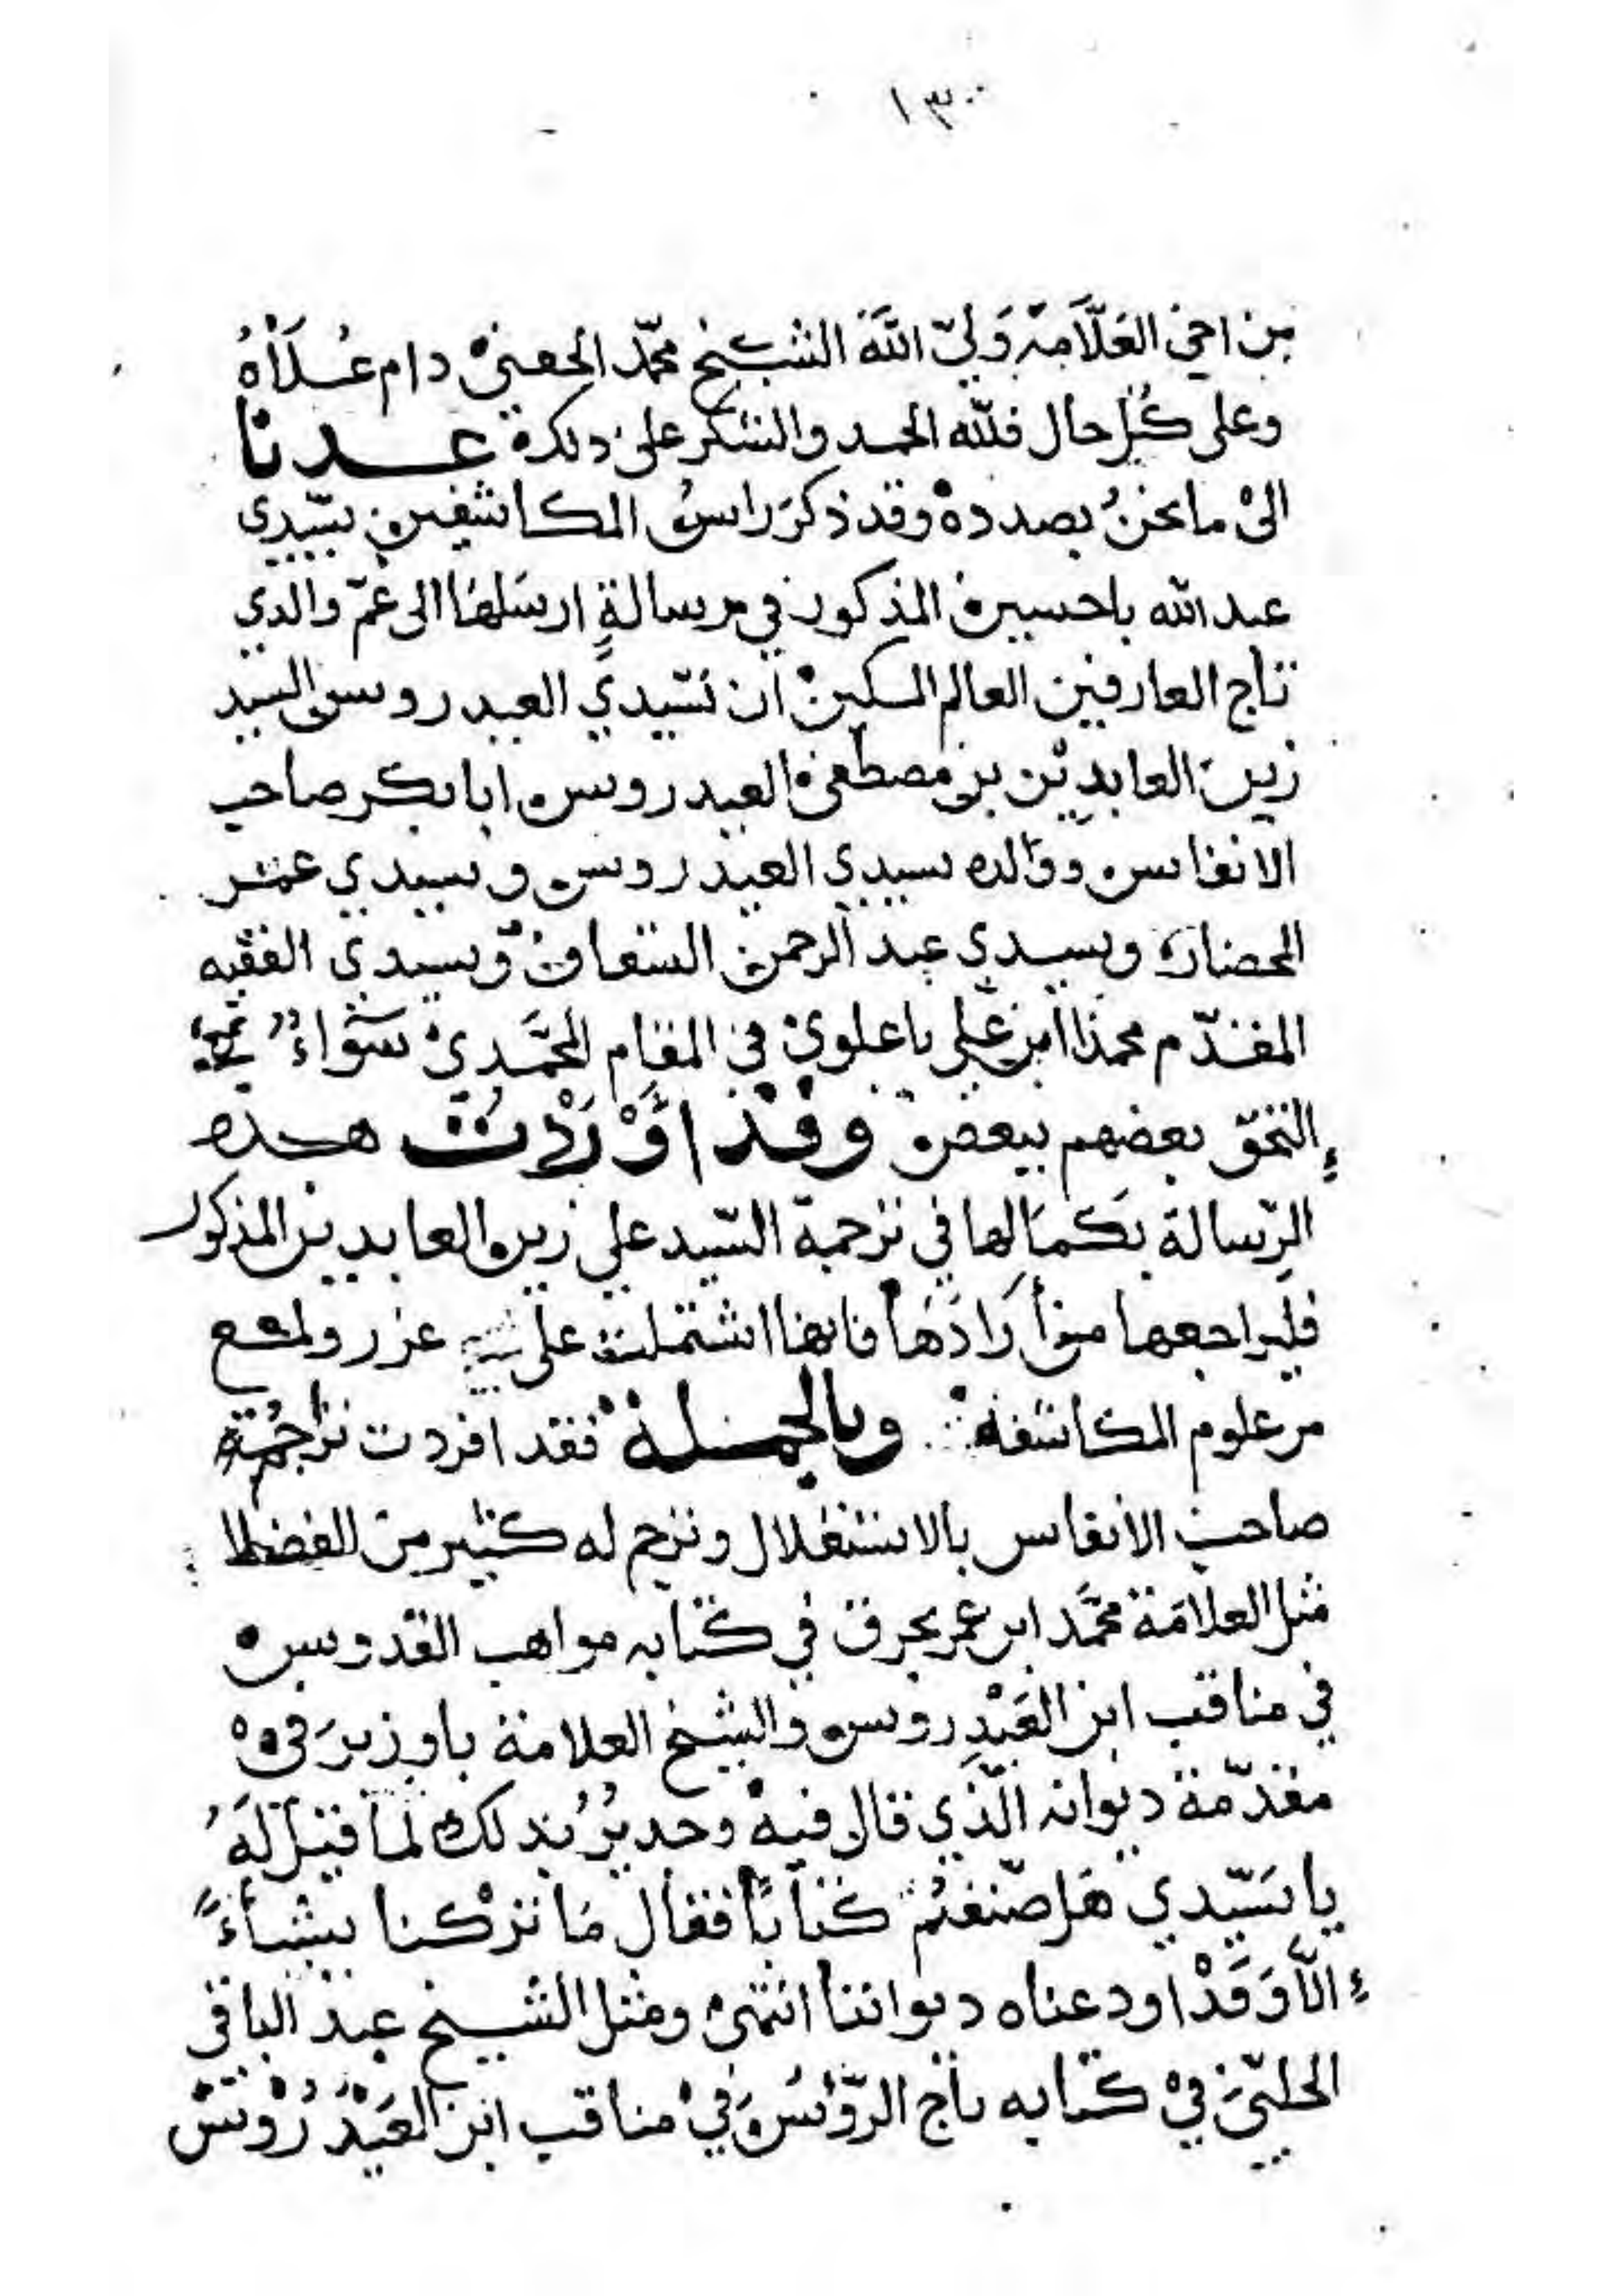 ١٣٠٠
من اخي العَلّامة وَلِيّ اللَّه الشيخ محمّد الحفني دام عُلَاهُ
وعلى كُل حال فللّه الحمد والشكر على ذلك عدنا
الى ما نحنُ بصدده وقد ذكرَ راس المكاشفين سيّدي
عبد الله باحسين المذكور في رسالةٍ ارسَلهَا الى عَمّ والدي
تاج العارفين العالم المسكين ان سَيّدي العيدروس السيد
زين العابدين بن مصطفى العيدروس ابا بكر صاحب
الانفاس ووالده سيدي العيدروس وسيدي عمر
المحضار وسيدي عبد الرحمن السقاف وسيدي الفقيه
المقدّم محمد ابن علي باعلوي في المقام المحَمَّدِي سَوَاءٌ
التحق بعضهم ببعض وقَدْ اَوْرَدْتُ هذه
الرِّسالة بكمَالها في ترجمة السّيد علي زين العابدين المذكور
فليراجعها من أرَادَهَا فانها اشتملت على غرر ولمع
من علوم المكاشفة وبالجملة فقد افردت ترَاجُمة
صاحب الانفاس بالاستقلال وترجم له كثير من الفضلا
مثل العلامَة محمَّد ابن عمر بحرق في كتابه مواهب القدوس
في مناقب ابن العَيْدِروس والشيخ العلامة باوزيرَ في
مقدّمة ديوانه الّذي قال فيه وحديرٌ بذلك لَمَا قيْلَ لَهُ
يا سَيّدي هَل صَنّفتُم كتَابًا فقال مَا ترْكنا شيأً
الّا وَقَدْ اودعناه ديواننا انتهى ومثل الشيخ عبد الباقي
الحلبّيَ فيْ كتابه تاج الرّؤسَ فيْ مناقب ابن العَيْدَرُوْسْ